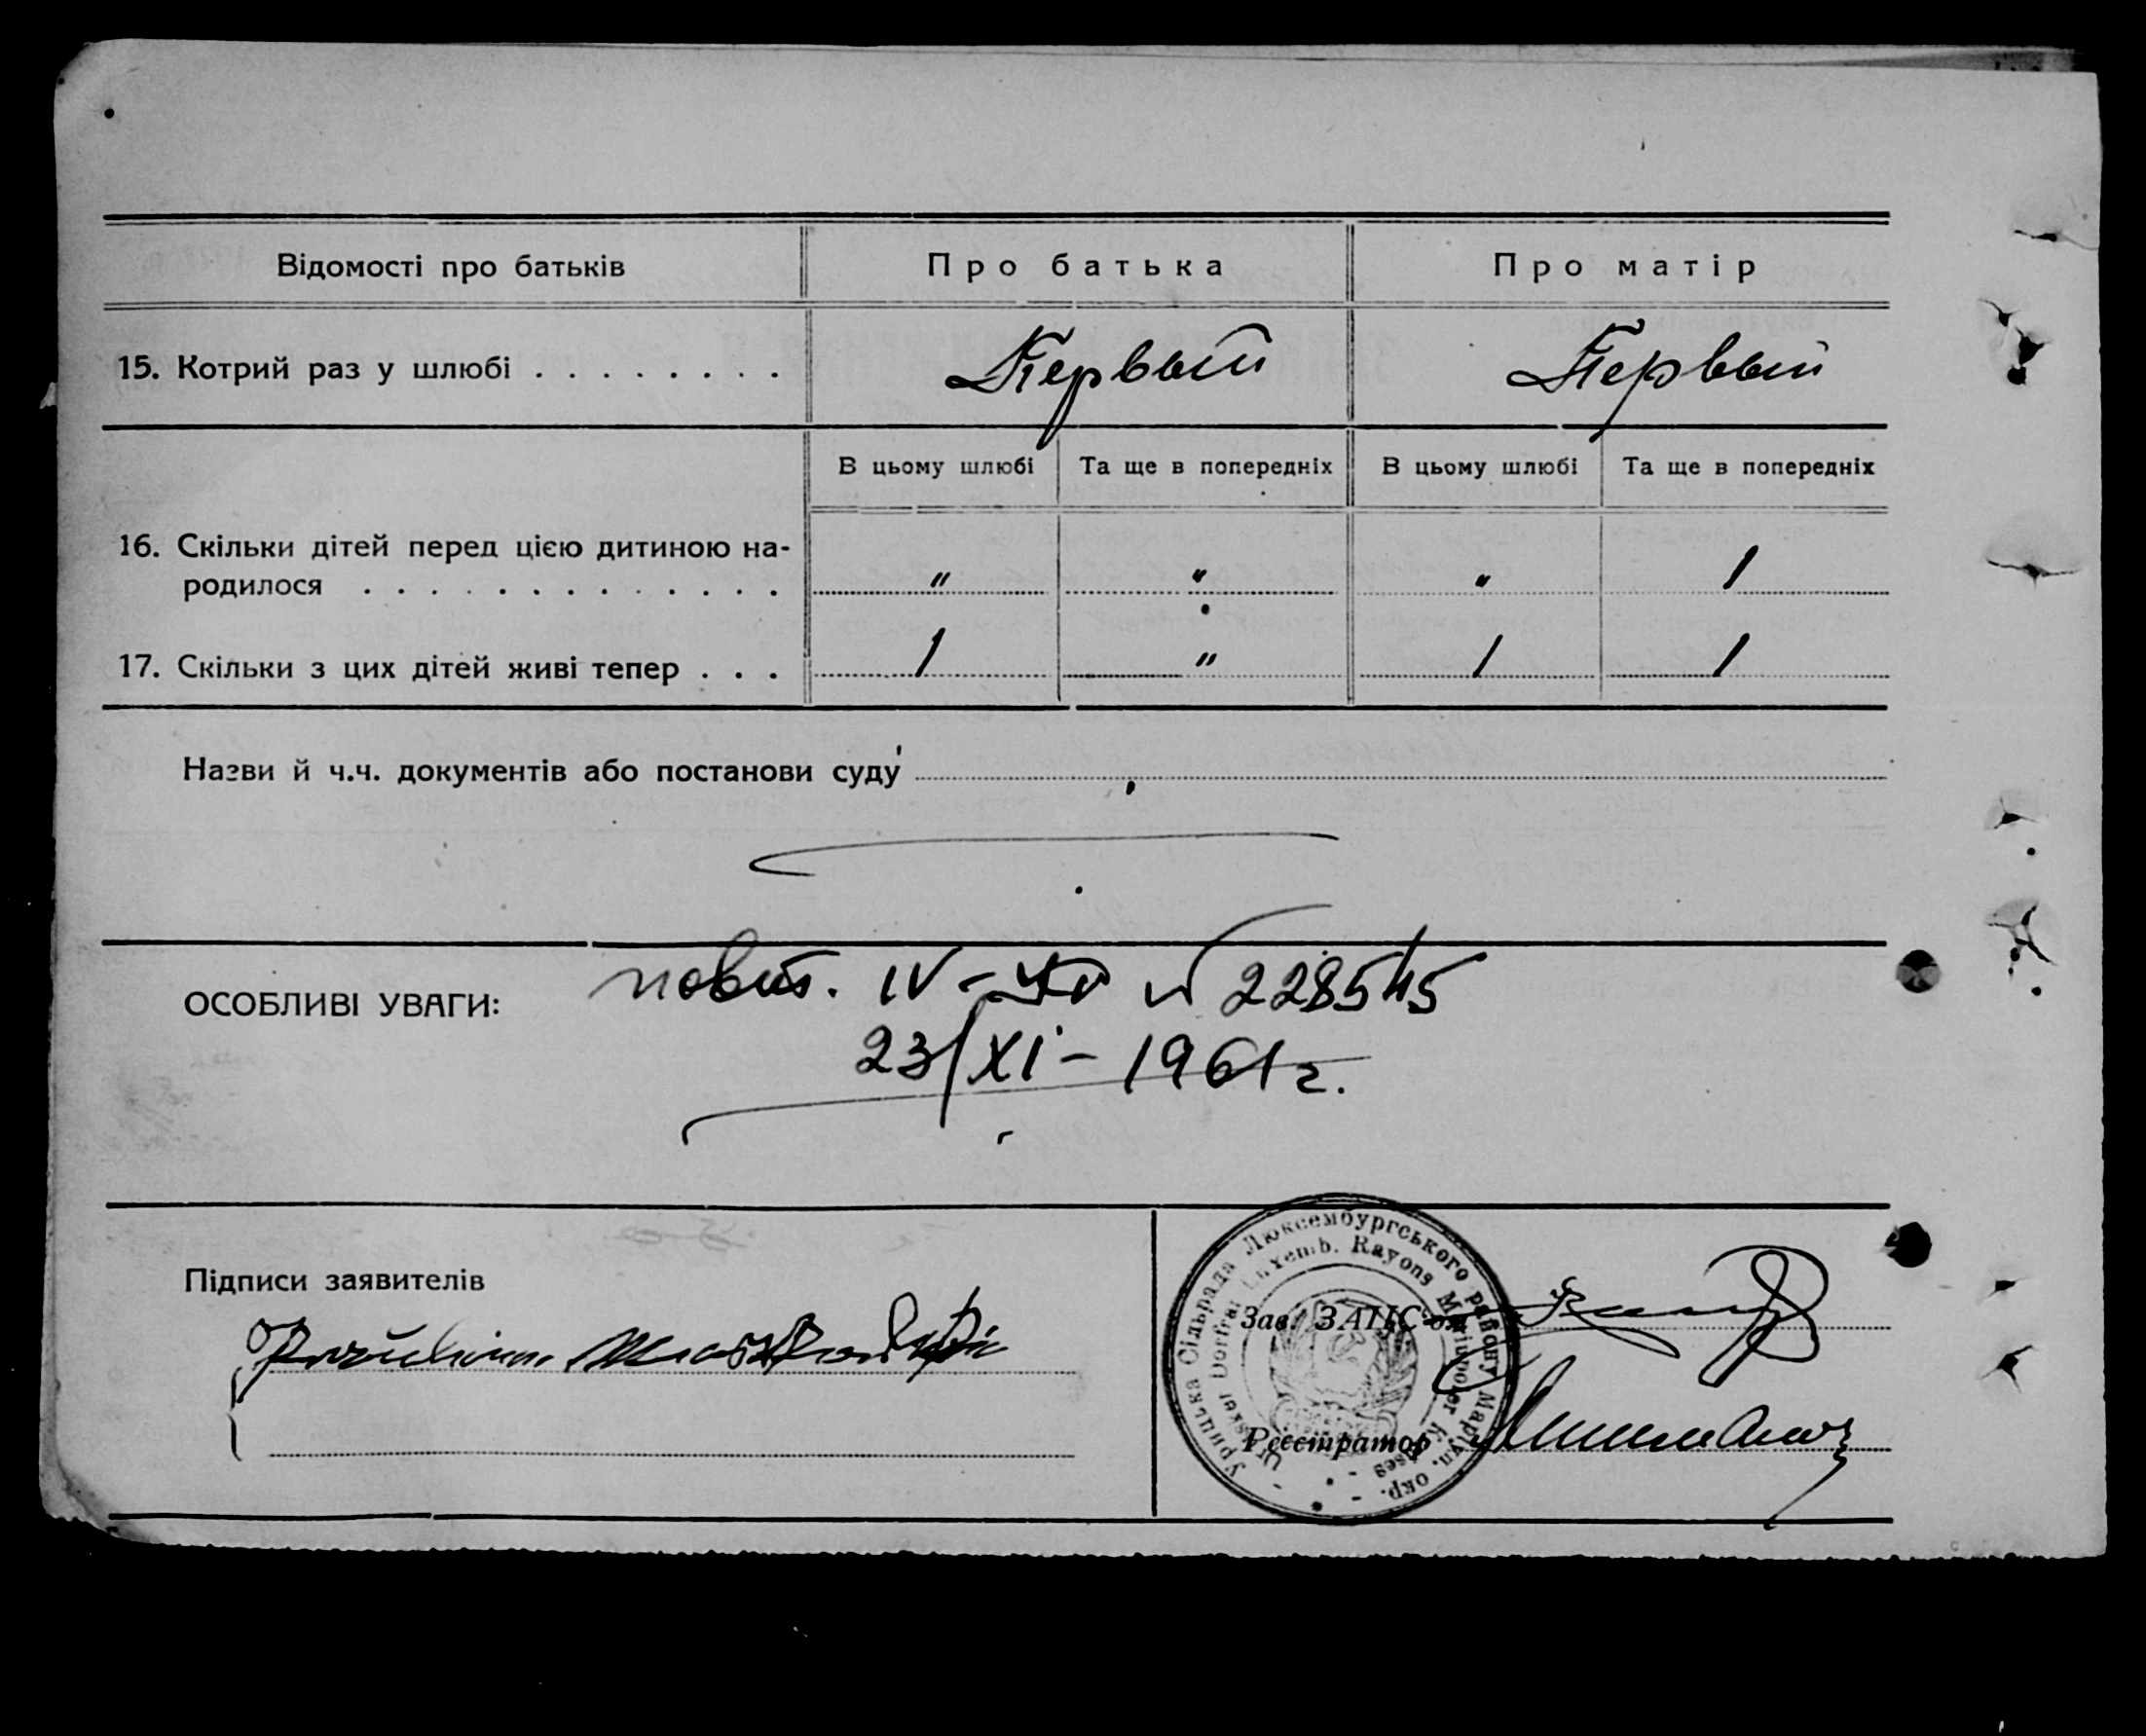 Відомості про батьків Про батька Про матір
15. Котрий раз у шлюбі . . . . . . . . Первый Первый
В цьому шлюбі Та ще в попередніх В цьому шлюбі Та ще в попередніх
16. Скільки дітей перед цією дитиною на-
родилося . . . . . . . . . . . . . " " " 1
17. Скільки з цих дітей живі тепер . . . 1 " 1 1
Назви й ч.ч. документів або постанови суду
ОСОБЛИВІ УВАГИ: повт. IV-
23/XI-1961г.
Підписи заявителів
Урицька Сільрада Люксембургського району Маріуп. окр.
Luxemb. Rayons Mariupoler Kreises
Зав. ЗАГС-ом
Реєстратор